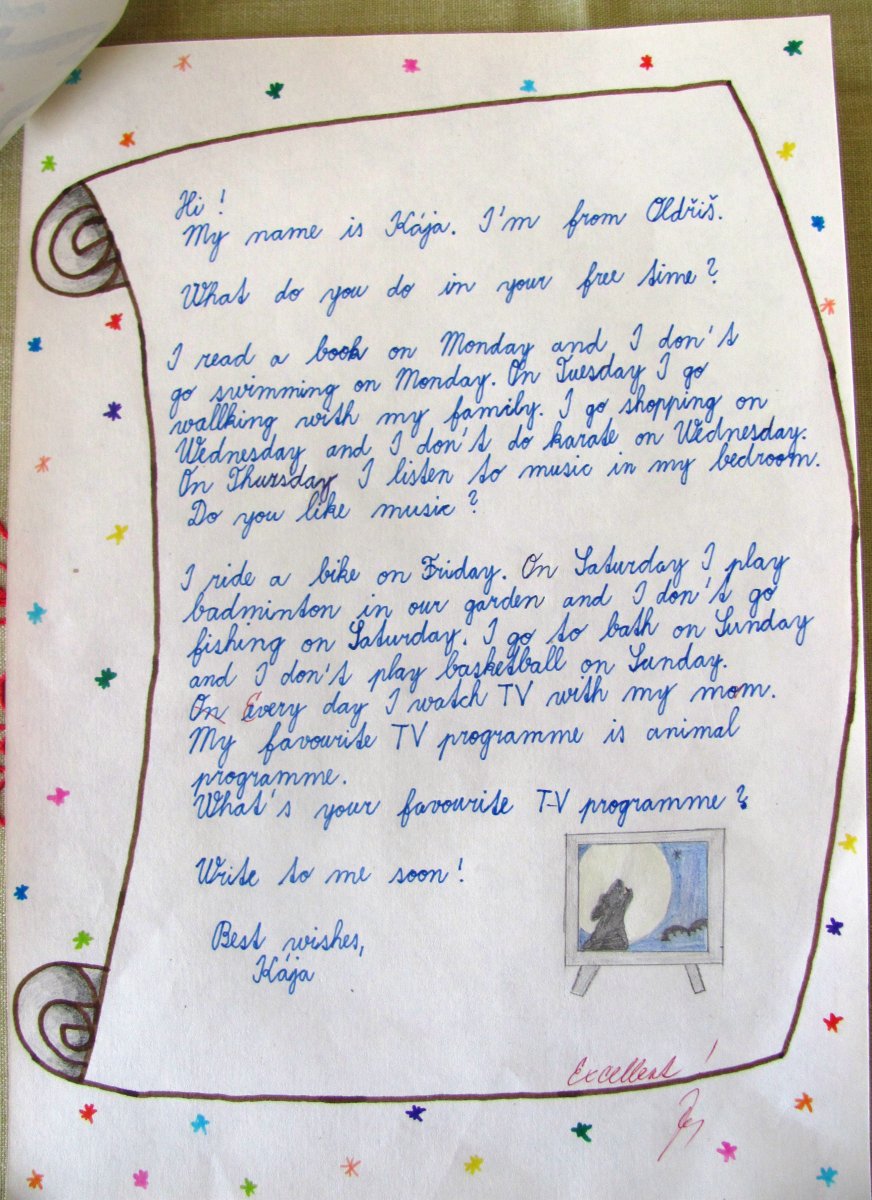 Hi !
My name is Kája. I'm from Oldřiš.
What do you do in your free time?
I read a book on Monday and I don't
go swimming on Monday. On Tuesday I go
wallking with my family. I go shopping on
Wednesday and I don't do karate on Wednesday.
On Thursday I listen to music in my bedroom.
Do you like music?
I ride a bike on Friday. On Saturday I play
badminton in our garden and I don't go
fishing on Saturday. I go to bath on Sunday
and I don't play basketball on Sunday.
On Every day I watch TV with my mom.
My favourite TV programme is animal
programme.
What's your favourite TV programme?
Write to me soon!
Best wishes,
Kája
Excellent!